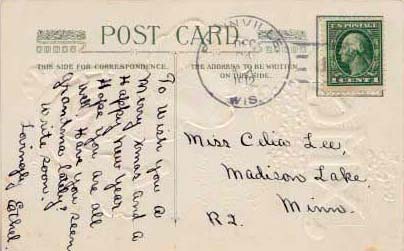 POST CARD
THIS SIDE FOR CORRESPONDENCE.
THE ADDRESS TO BE WRITTEN
ON THIS SIDE
DEC
WIS.
1 CENT 1
To wish you a
Merry Xmas and a
Happy New Year
Hope you are all
well. Have you seen
Grandma lately?
Write soon.
Lovingly Ethel.
Miss Celia Lee,
Madison Lake,
Minn.
R2.